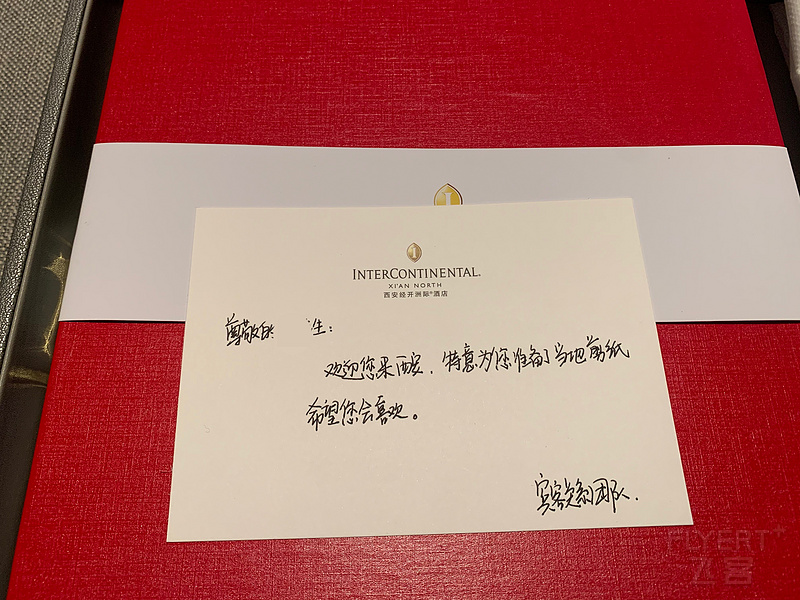 INTERCONTINENTAL®
XI'AN NORTH
西安经开洲际®酒店
尊敬的 生：
欢迎您来西安，特意为您准备了当地剪纸
希望您会喜欢。
宾客关系团队.
FLYERT+
飞客